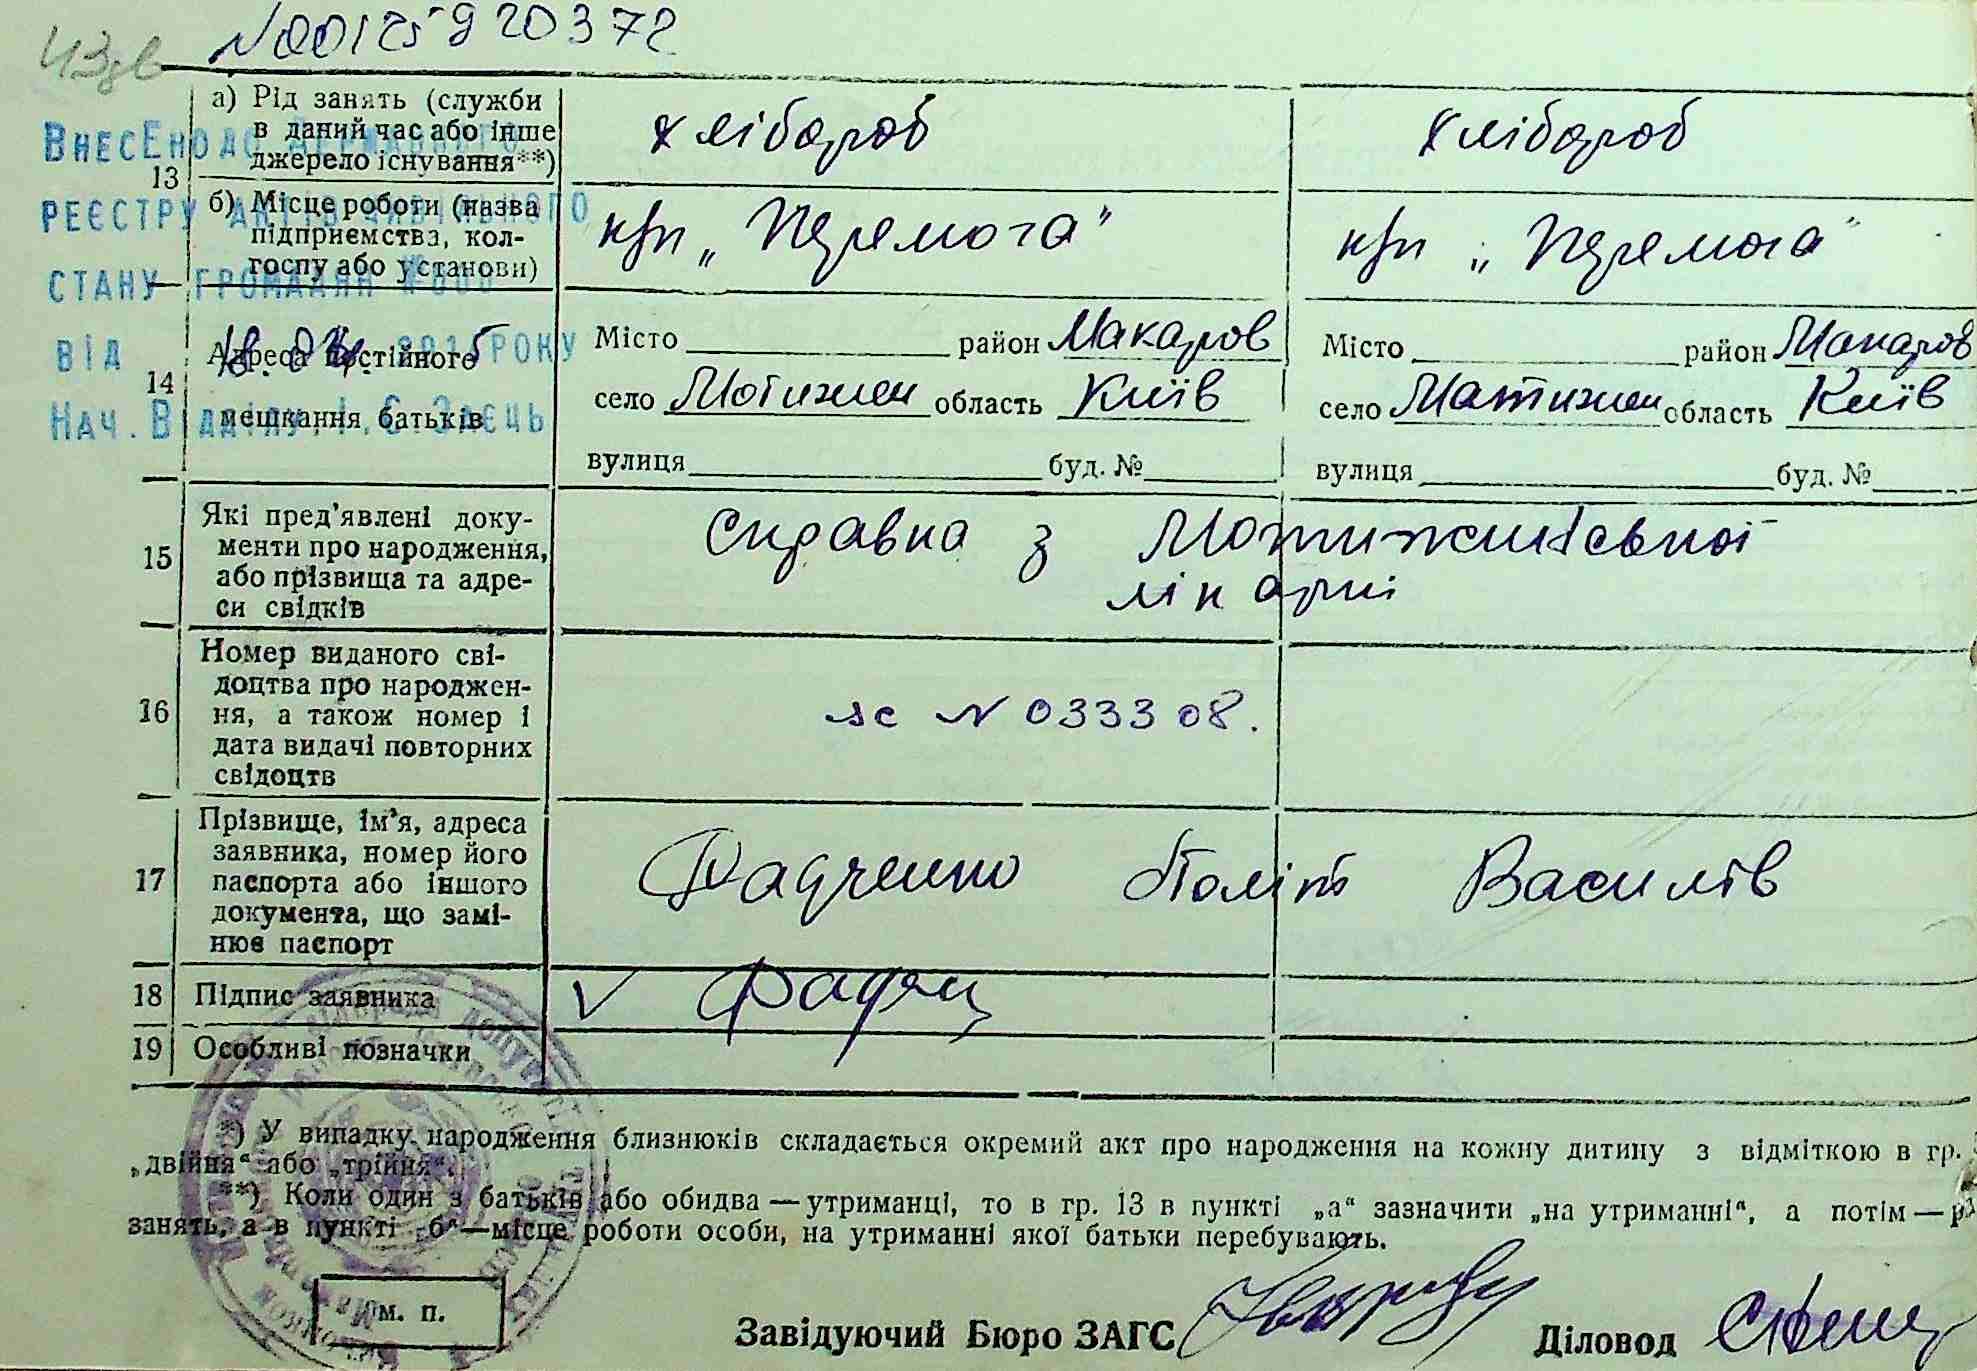 N00125920372
ВНЕСЕНО ДО ДЕРЖАВНОГО
РЕЄСТРУ АКТІВ ЦИВІЛЬНОГО
СТАНУ ГРОМАДЯН
ВІД 18.04. 2015 РОКУ
НАЧ. ВІДДІЛУ І.С. ЗАЄЦЬ
13
а) Рід занять (служби
в даний час або інше
джерело існування**)
хлібороб
хлібороб
б) Місце роботи (назва
підприємства, кол-
госпу або установи)
к/гп „Перемога"
к/гп „Перемога"
14
Адреса постійного
мешкання батьків
Місто район Макаров
село Мотижин область Київ
вулиця буд. №
Місто район Макаров
село Мотижин область Київ
вулиця буд. №
15
Які пред'явлені доку-
менти про народження,
або прізвища та адре-
си свідків
Справка з Мотижинської
лікарні
16
Номер виданого сві-
доцтва про народжен-
ня, а також номер і
дата видачі повторних
свідоцтв
N 033308.
17
Прізвище, ім'я, адреса
заявника, номер його
паспорта або іншого
документа, що замі-
нює паспорт
Фадченко Василів
18
Підпис заявника
19
Особливі позначки
*) У випадку народження близнюків складається окремий акт про народження на кожну дитину з відміткою в гр.
„двійня" або „трійня".
**) Коли один з батьків або обидва — утриманці, то в гр. 13 в пункті „а" зазначити „на утриманні", а потім —
занять, а в пункті „б"—місце роботи особи, на утриманні якої батьки перебувають.
м. п.
Завідуючий Бюро ЗАГС
Діловод